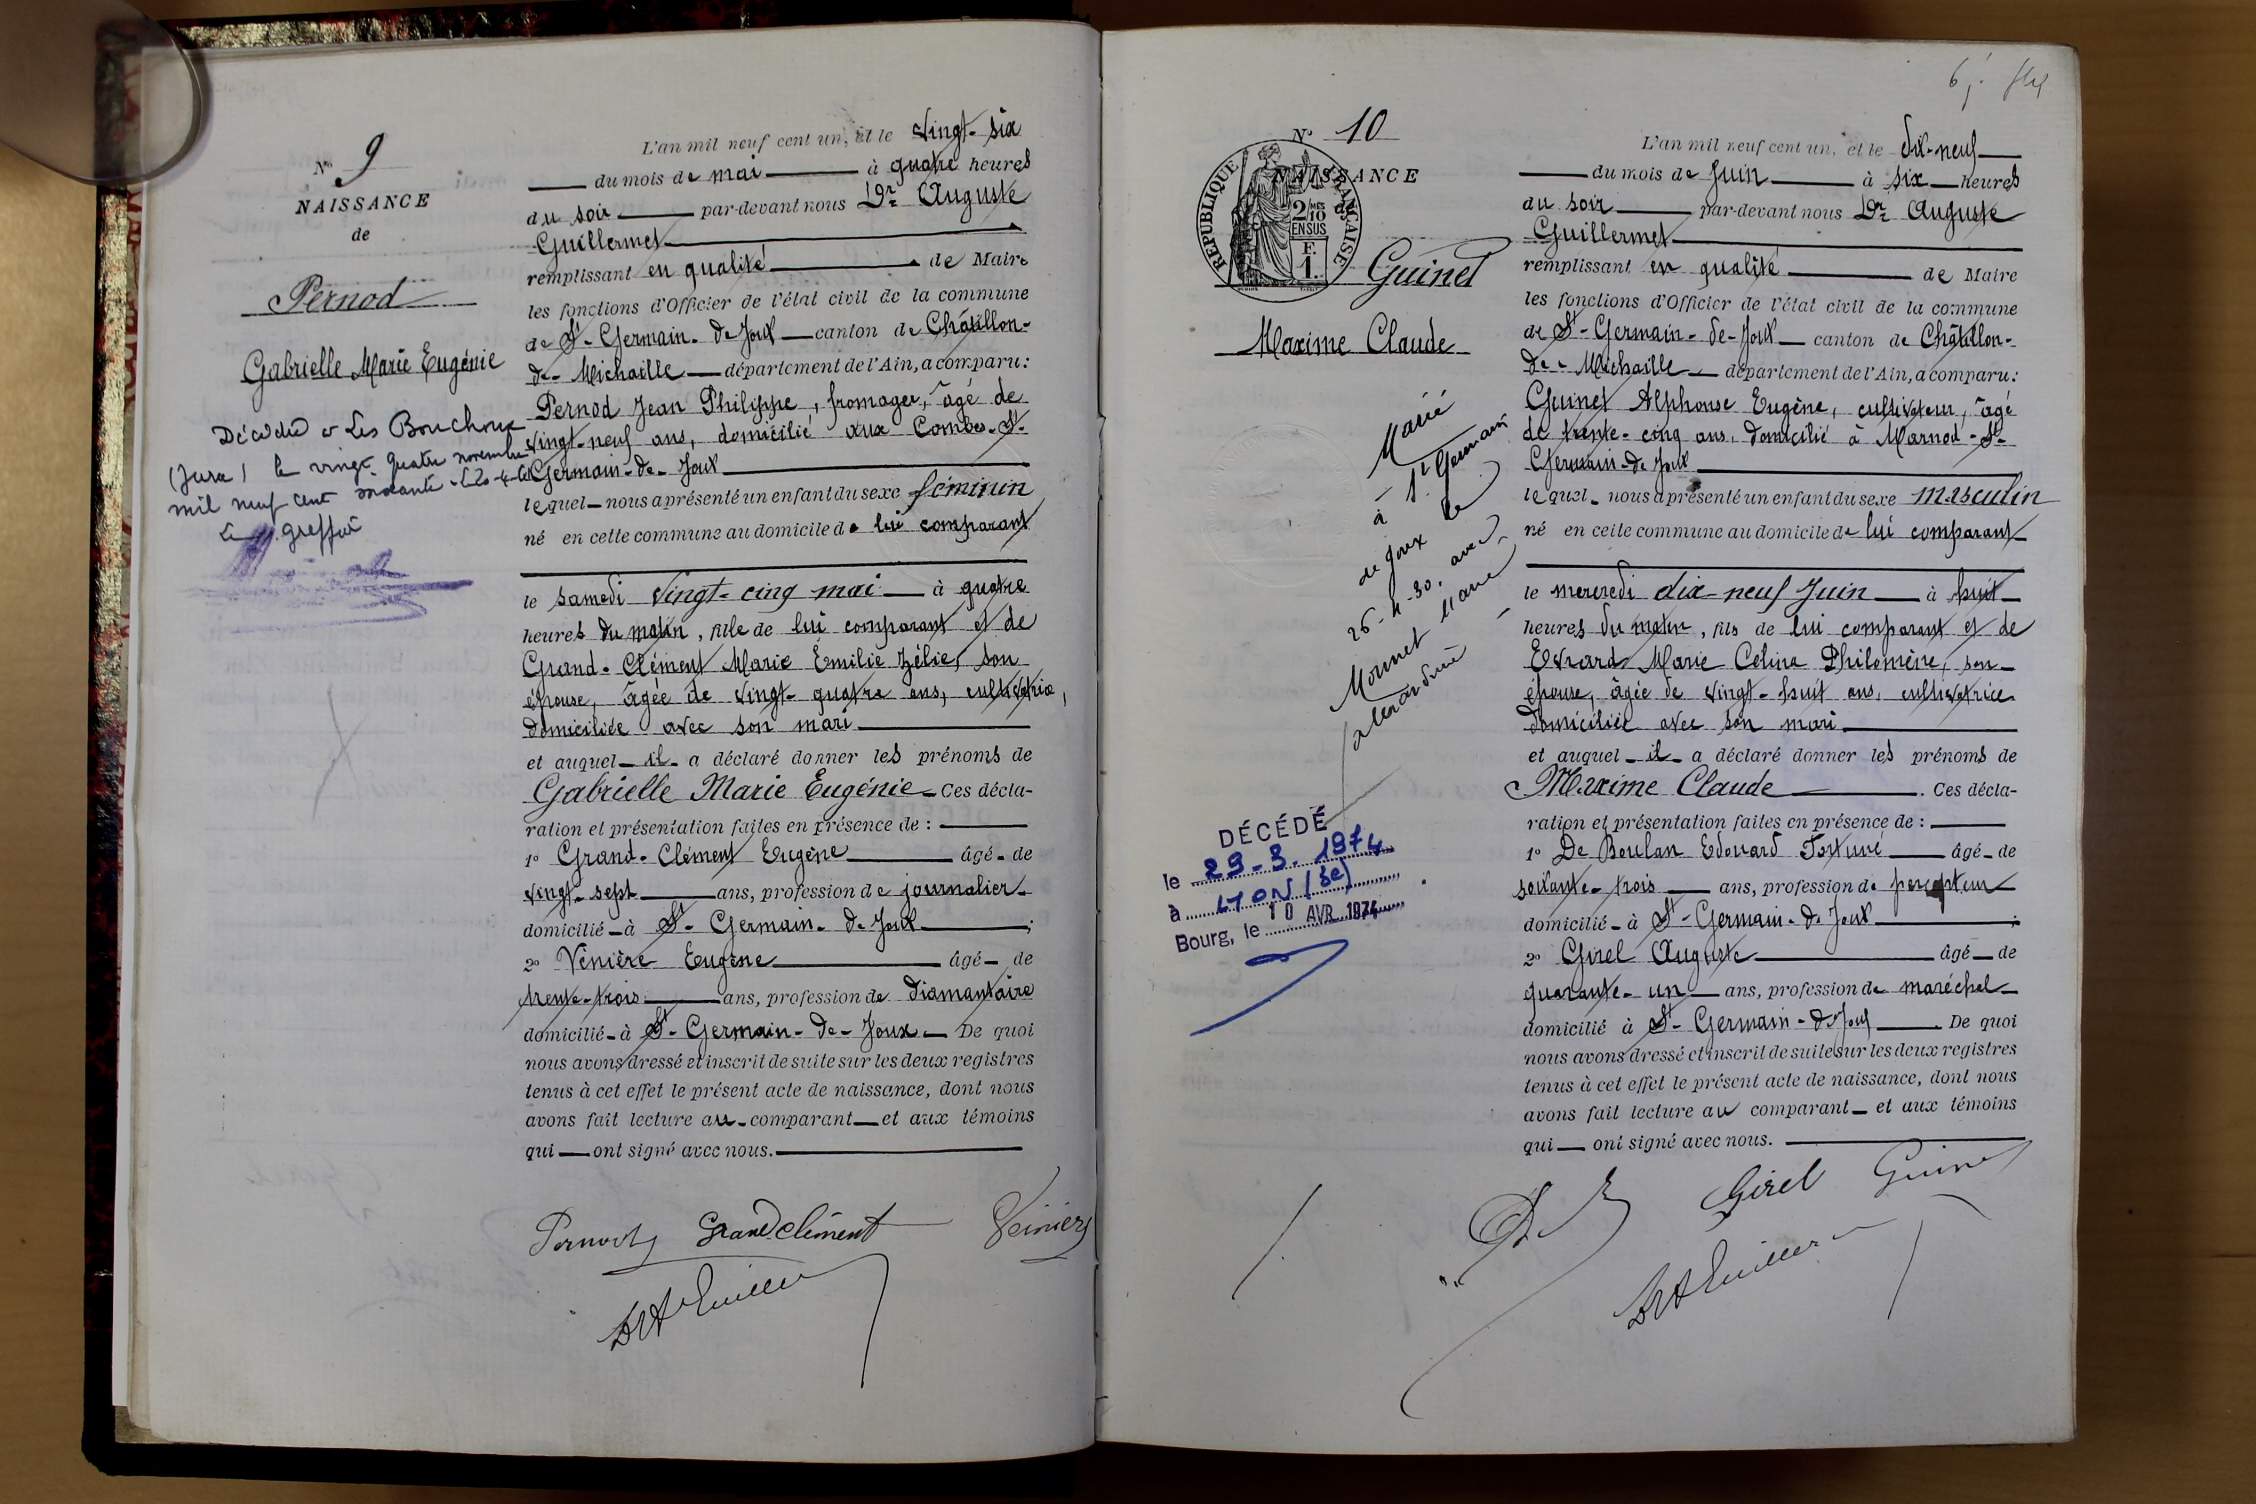 N° 9
NAISSANCE
de
Pernod
Gabrielle Marie Eugénie
Décédée à Les Bouchoux
(Jura) le vingt quatre novembre
mil neuf cent soixante
Le greffier
L'an mil neuf cent un, et le vingt-six
du mois de mai à quatre heures
du soir par-devant nous Dr Auguste
Guillermet
remplissant en qualité de Maire
les fonctions d'Officier de l'état civil de la commune
de St-Germain-de-Joux canton de Châtillon-
de-Michaille département de l'Ain, a comparu:
Pernod Jean Philippe, fromager, âgé de
vingt-neuf ans, domicilié aux Combes-St-
Germain-de-Joux
lequel nous a présenté un enfant du sexe féminin
né en cette commune au domicile de lui comparant
le samedi vingt-cinq mai à quatre
heures du matin, fille de lui comparant et de
Grand-Clément Marie Emilie Zélie, son
épouse, âgée de vingt-quatre ans, cultivatrice,
domiciliée avec son mari
et auquel il a déclaré donner les prénoms de
Gabrielle Marie Eugénie Ces décla-
ration et présentation faites en présence de :
1° Grand-Clément Eugène âgé de
vingt-sept ans, profession de journalier
domicilié à St-Germain-de-Joux ;
2° Vènière Eugène âgé de
trente-trois ans, profession de diamantaire
domicilié à St-Germain-de-Joux De quoi
nous avons dressé et inscrit de suite sur les deux registres
tenus à cet effet le présent acte de naissance, dont nous
avons fait lecture au comparant et aux témoins
qui ont signé avec nous.
Pernod Grandclément Veiniere
N° 10
NAISSANCE
de
RÉPUBLIQUE FRANÇAISE
2/10 EN SUS
F.
1.
Guinet
Maxime Claude
Marié
à St Germain
de Joux le
26-4-30, avec
Monnet Marie
Alexandrine
DÉCÉDÉ
le 29-3-1974
à LYON (3e)
Bourg, le 10 AVR. 1974
L'an mil neuf cent un, et le dix-neuf
du mois de Juin à six heures
du soir par-devant nous Dr Auguste
Guillermet
remplissant en qualité de Maire
les fonctions d'Officier de l'état civil de la commune
de St-Germain-de-Joux canton de Châtillon-
de-Michaille département de l'Ain, a comparu:
Guinet Alphonse Eugène, cultivateur, âgé
de trente-cinq ans, domicilié à Marnod-St-
Germain-de-Joux
lequel nous a présenté un enfant du sexe masculin
né en cette commune au domicile de lui comparant
le mercredi dix-neuf Juin à huit
heures du matin, fils de lui comparant et de
Evrard Marie Celina Philomène, son
épouse, âgée de vingt-huit ans, cultivatrice
domiciliée avec son mari
et auquel il a déclaré donner les prénoms de
Maxime Claude . Ces décla-
ration et présentation faites en présence de :
1° De Boulan Edouard Fortuné âgé de
soixante-trois ans, profession de percepteur
domicilié à St-Germain-de-Joux ;
2° Girel Auguste âgé de
quarante-un ans, profession de maréchal
domicilié à St-Germain-de-Joux De quoi
nous avons dressé et inscrit de suite sur les deux registres
tenus à cet effet le présent acte de naissance, dont nous
avons fait lecture au comparant et aux témoins
qui ont signé avec nous.
Girel Guinet